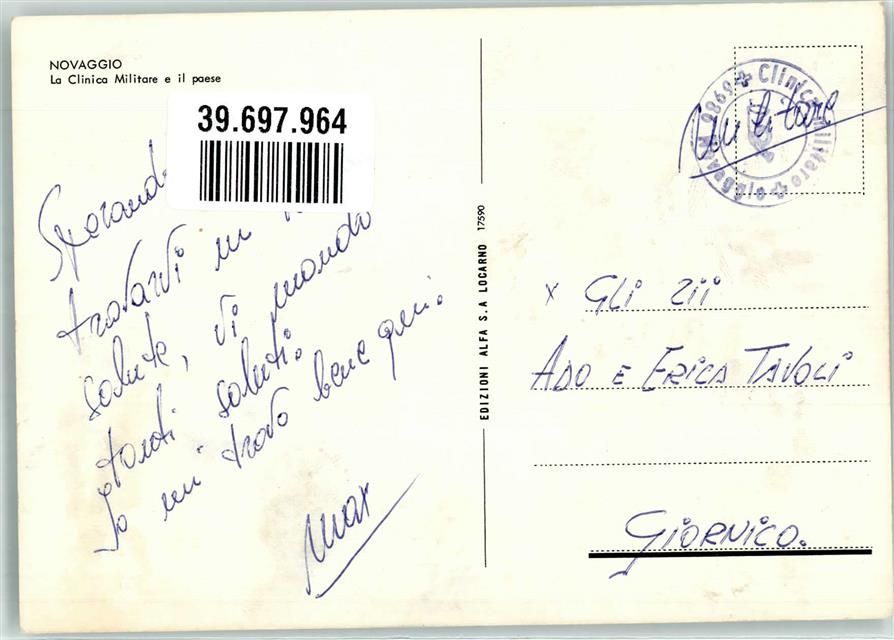 NOVAGGIO
La Clinica Militare e il paese
39.697.964
trovarvi in
salute, vi mando
tanti saluti.
Io mi trovo bene qui.
Max
EDIZIONI ALFA S.A LOCARNO 17590
Clinica Militare
6986 Novaggio
Militare
x Gli zii
Ado e Erica Tavoli
Giornico.